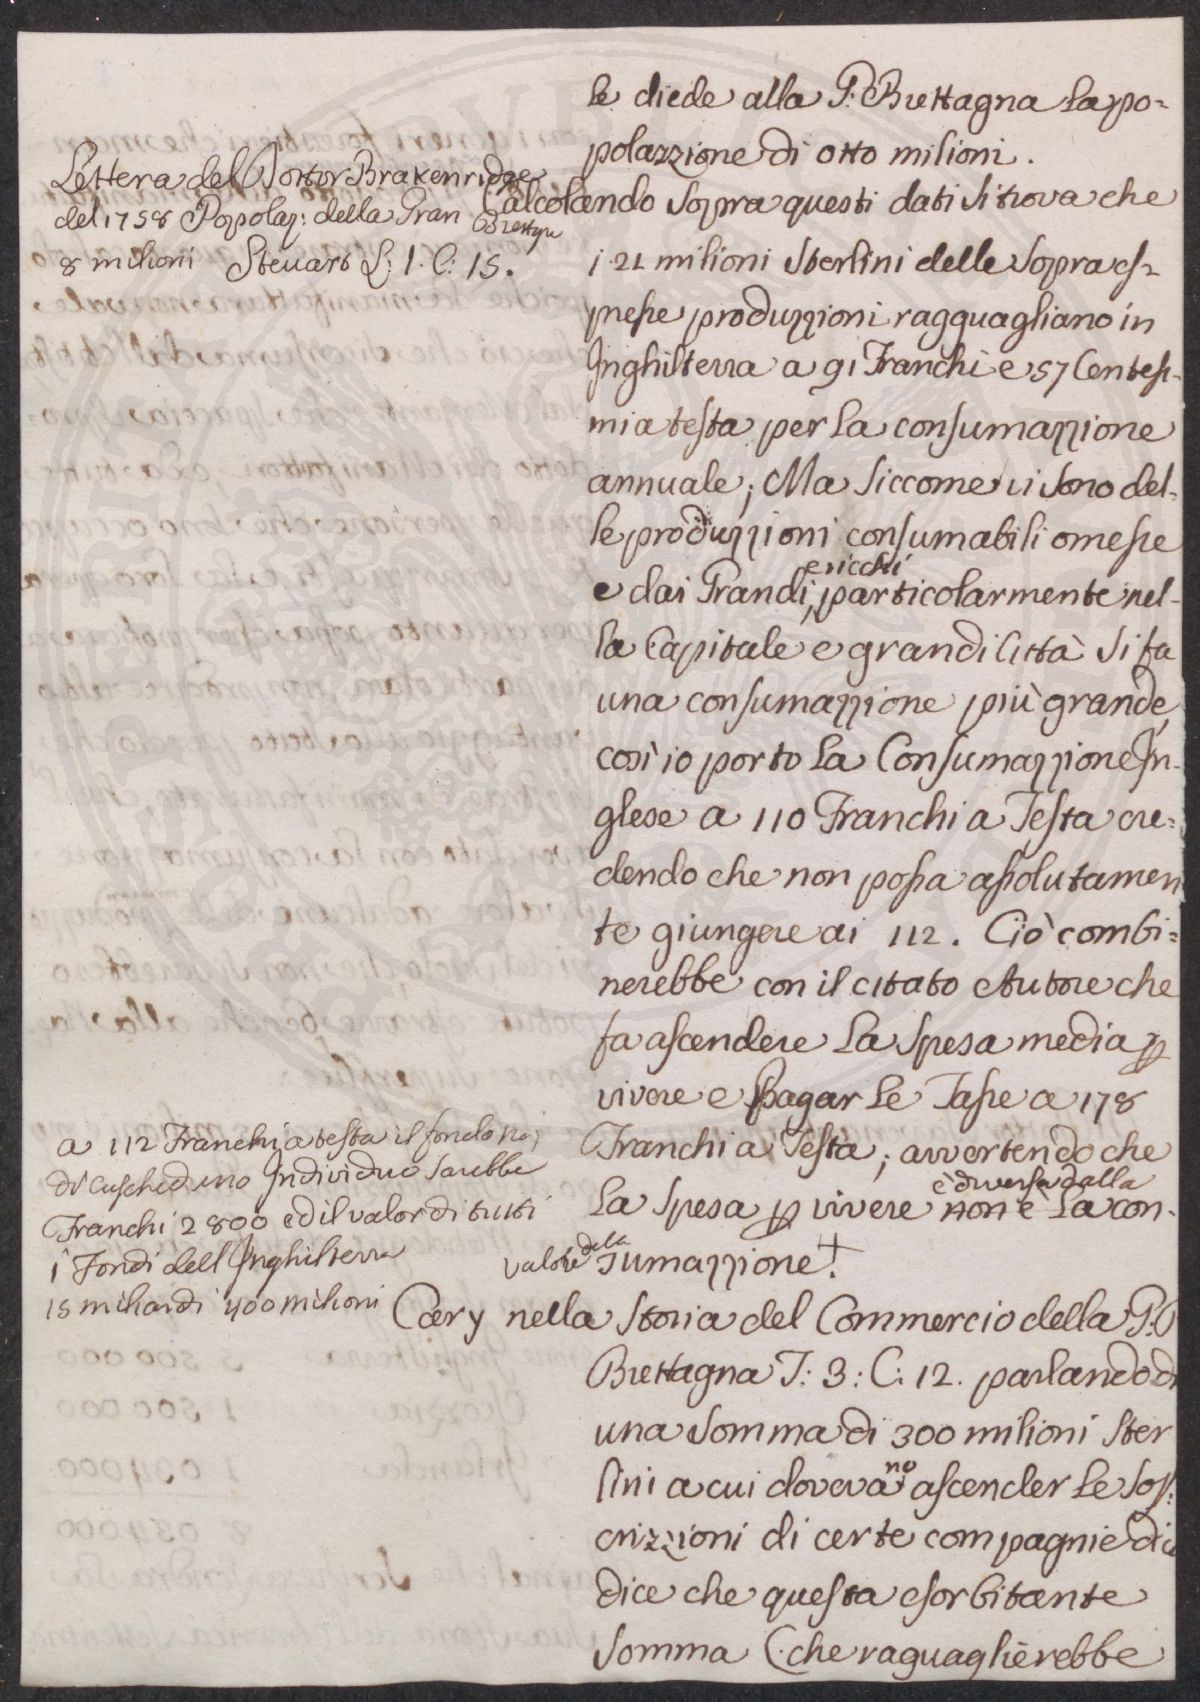 le diede alla G: Brettagna la po=
polazzione di otto milioni.
Lettera del Dottor Brakenridge
del 1758 Popolaz: della Gran Brettagn
8 milioni Steuart L: 1. C: 15.
Calcolando sopra questi dati si trova che
i 21 milioni sterlini delle sopra es=
presse produzzioni ragguagliano in
Inghilterra a 91 Franchi e 57 Centesi-
mi a testa per la consumazzione
annuale; Ma siccome vi sono del-
le produzzioni consumabili omesse
e dai Grandi, e ricchi particolarmente nel-
la Capitale e grandi Città si fa
una consumazzione più grande,
così io porto la Consumazzione In-
glese a 110 Franchi a Testa cre=
dendo che non possa assolutamen
te giungere ai 112. Ciò combi=
nerebbe con il citato Autore che
fa ascendere la spesa media p
vivere e pagar le Tasse a 178
Franchi a Testa; avvertendo che
la spesa p vivere non è è diversa dalla la con-
valore della sumazzione. +
a 112 Franchi a testa il fondo
di cuscheduno Individuo sarebbe
Franchi 2800 ed il valor di tutti
i Fondi dell Inghilterra
15 miliardi 400 milioni
Cary nella Storia del Commercio della G:
Brettagna T: 3: C: 12. parlando di
una somma di 300 milioni ster
lini a cui dovevano ascender le sos=
crizzioni di certe compagnie
dice che questa esorbitante
somma (che raguaglierebbe